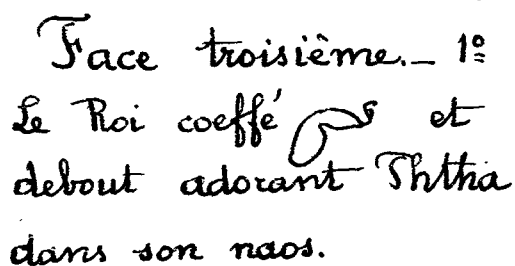 Face troisième._ 1º
Le Roi coeffé et
debout adorant Phtha
dans son naos.